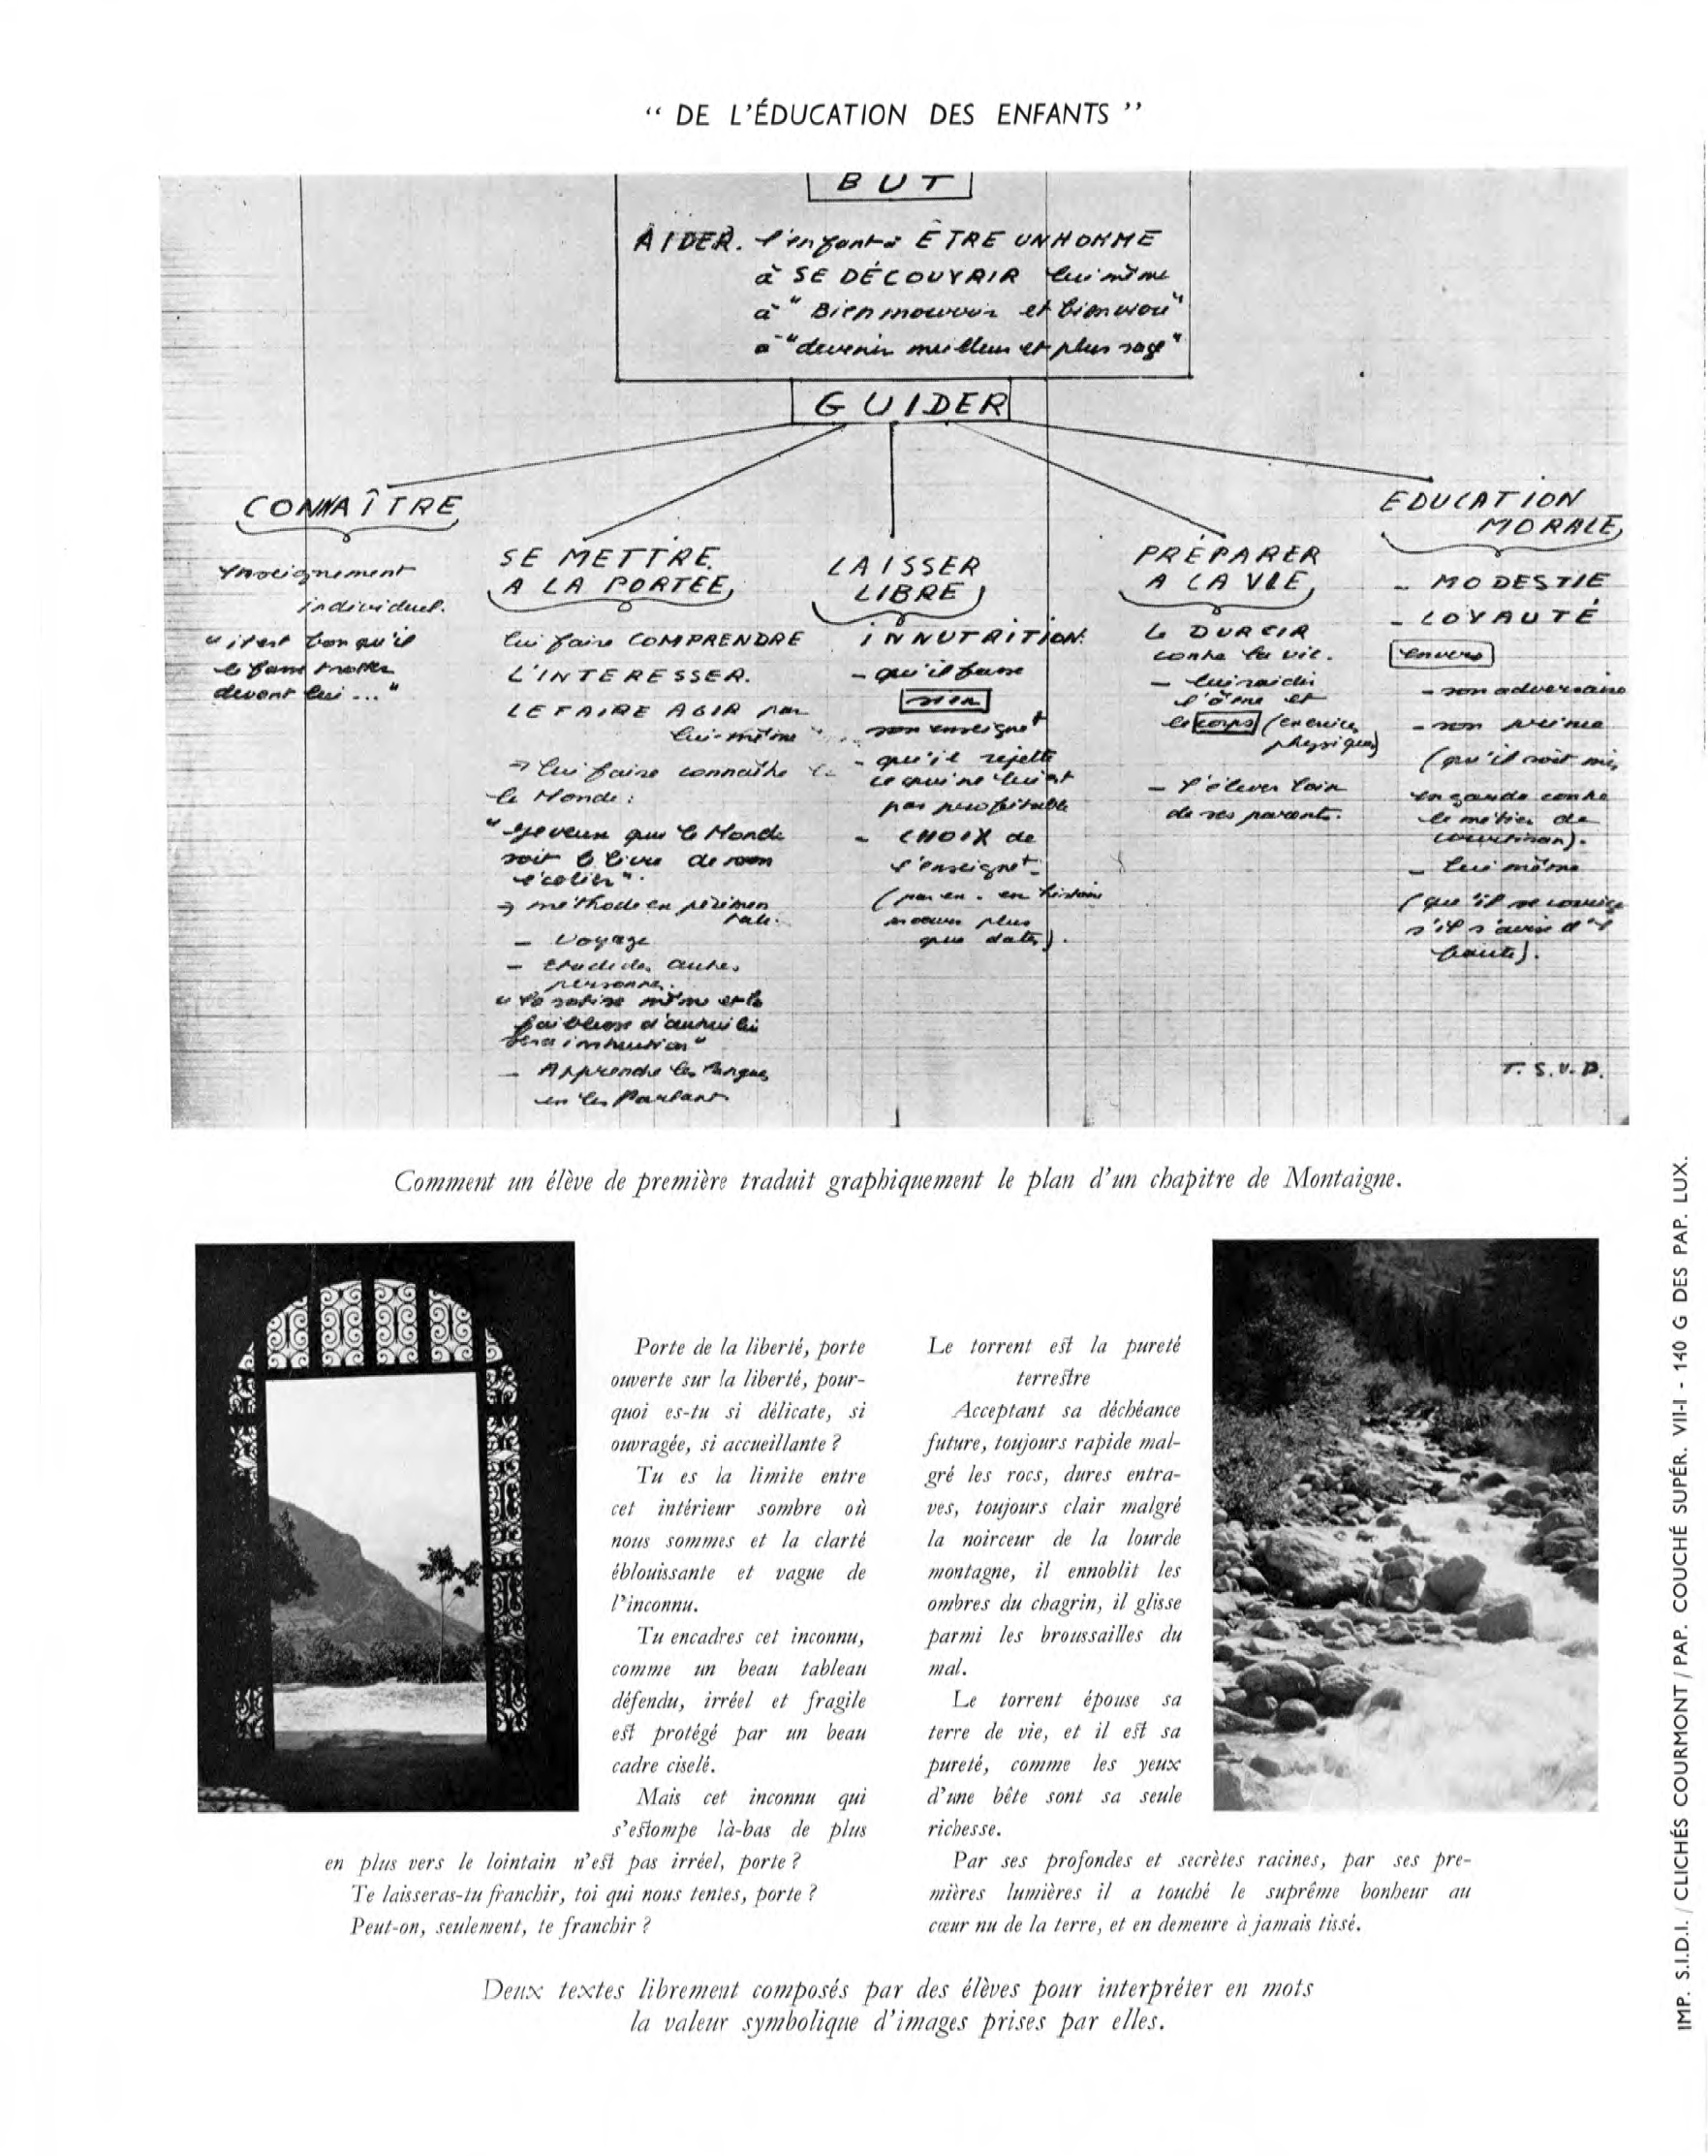 “ DE L’ÉDUCATION DES ENFANTS ”
BUT
AIDER. l'enfant à ÊTRE UN HOMME
à SE DÉCOUVRIR lui même
à " Bien mourir et bien vivre"
à "devenir meilleur et plus sage"
GUIDER
CONNAÎTRE
enseignement
individuel.
" il est bon qu'il
le fasse trotter
devant lui ..."
SE METTRE
A LA PORTEE
lui faire COMPRENDRE
L'INTERESSER.
LE FAIRE AGIR par
lui-même
→ lui faire connaître
le Monde :
" je veux que le Monde
soit le livre de mon
écolier".
→ méthode expérimen
tale.
- Voyage
- Etude des autres
personnes.
" la sottise même et la
faiblesse d'autrui lui
sera instruction"
- Apprendre les langues
en les Parlant
LAISSER
LIBRE
INNUTRITION.
- qu'il fasse
sien
son enseignt
- qu'il rejette
ce qui ne lui est
pas profitable
- CHOIX de
l'enseignt
(par ex. en histoire
moeurs plus
que dates).
PRÉPARER
A LA VIE
Le DURCIR
contre la vie.
- lui raidir
l'âme et
le corps (exercices
physiques)
- l'élever loin
de ses parents.
EDUCATION
MORALE
- MODESTIE
- LOYAUTÉ
envers
- son adversaire
- son prince
(qu'il soit mis
en garde contre
le métier de
courtisan).
- lui même
(qu'il se corrige
s'il s'avise d'
faute).
T. S. V. P.
Comment un élève de première traduit graphiquement le plan d’un chapitre de Montaigne.
Porte de la liberté, porte
ouverte sur la liberté, pour-
quoi es-tu si délicate, si
ouvragée, si accueillante ?
Tu es la limite entre
cet intérieur sombre où
nous sommes et la clarté
éblouissante et vague de
l’inconnu.
Tu encadres cet inconnu,
comme un beau tableau
défendu, irréel et fragile
est protégé par un beau
cadre ciselé.
Mais cet inconnu qui
s’estompe là-bas de plus
en plus vers le lointain n’est pas irréel, porte ?
Te laisseras-tu franchir, toi qui nous tentes, porte ?
Peut-on, seulement, te franchir ?
Le torrent est la pureté
terrestre
Acceptant sa déchéance
future, toujours rapide mal-
gré les rocs, dures entra-
ves, toujours clair malgré
la noirceur de la lourde
montagne, il ennoblit les
ombres du chagrin, il glisse
parmi les broussailles du
mal.
Le torrent épouse sa
terre de vie, et il est sa
pureté, comme les yeux
d’une bête sont sa seule
richesse.
Par ses profondes et secrètes racines, par ses pre-
mières lumières il a touché le suprême bonheur au
cœur nu de la terre, et en demeure à jamais tissé.
Deux textes librement composés par des élèves pour interpréter en mots
la valeur symbolique d’images prises par elles.
IMP. S.I.D.I. / CLICHÉS COURMONT / PAP. COUCHÉ SUPÉR. VII-I - 140 G DES PAP. LUX.